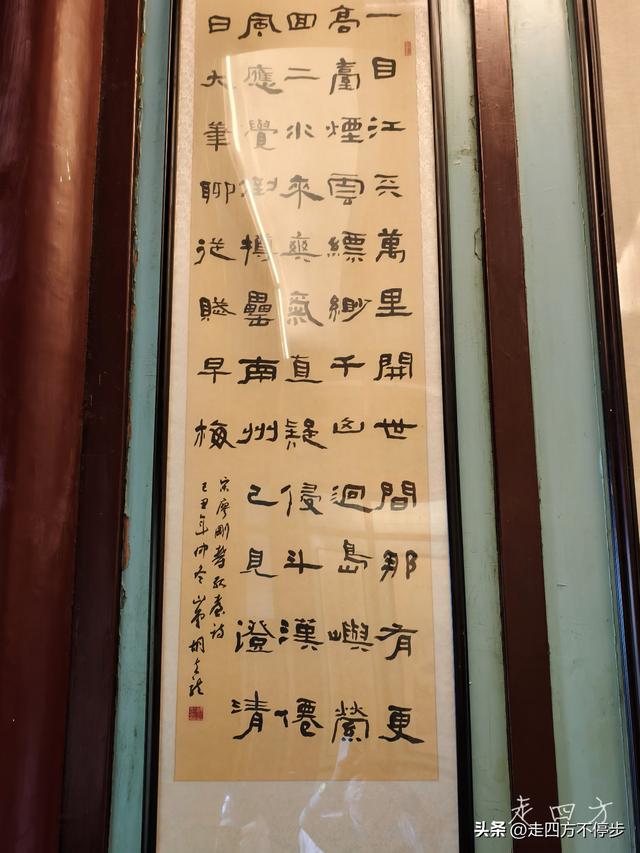 一目江天萬里開世間那有更
高臺煙雲縹緲千山迥島嶼縈
回二水來爽氣直疑侵斗漢僊
風應覺倒樽罍南州已見澄清
日大筆聊從賦早梅
宋廖剛鬱孤臺詩
己丑年仲冬
走四方
头条 @走四方不停步